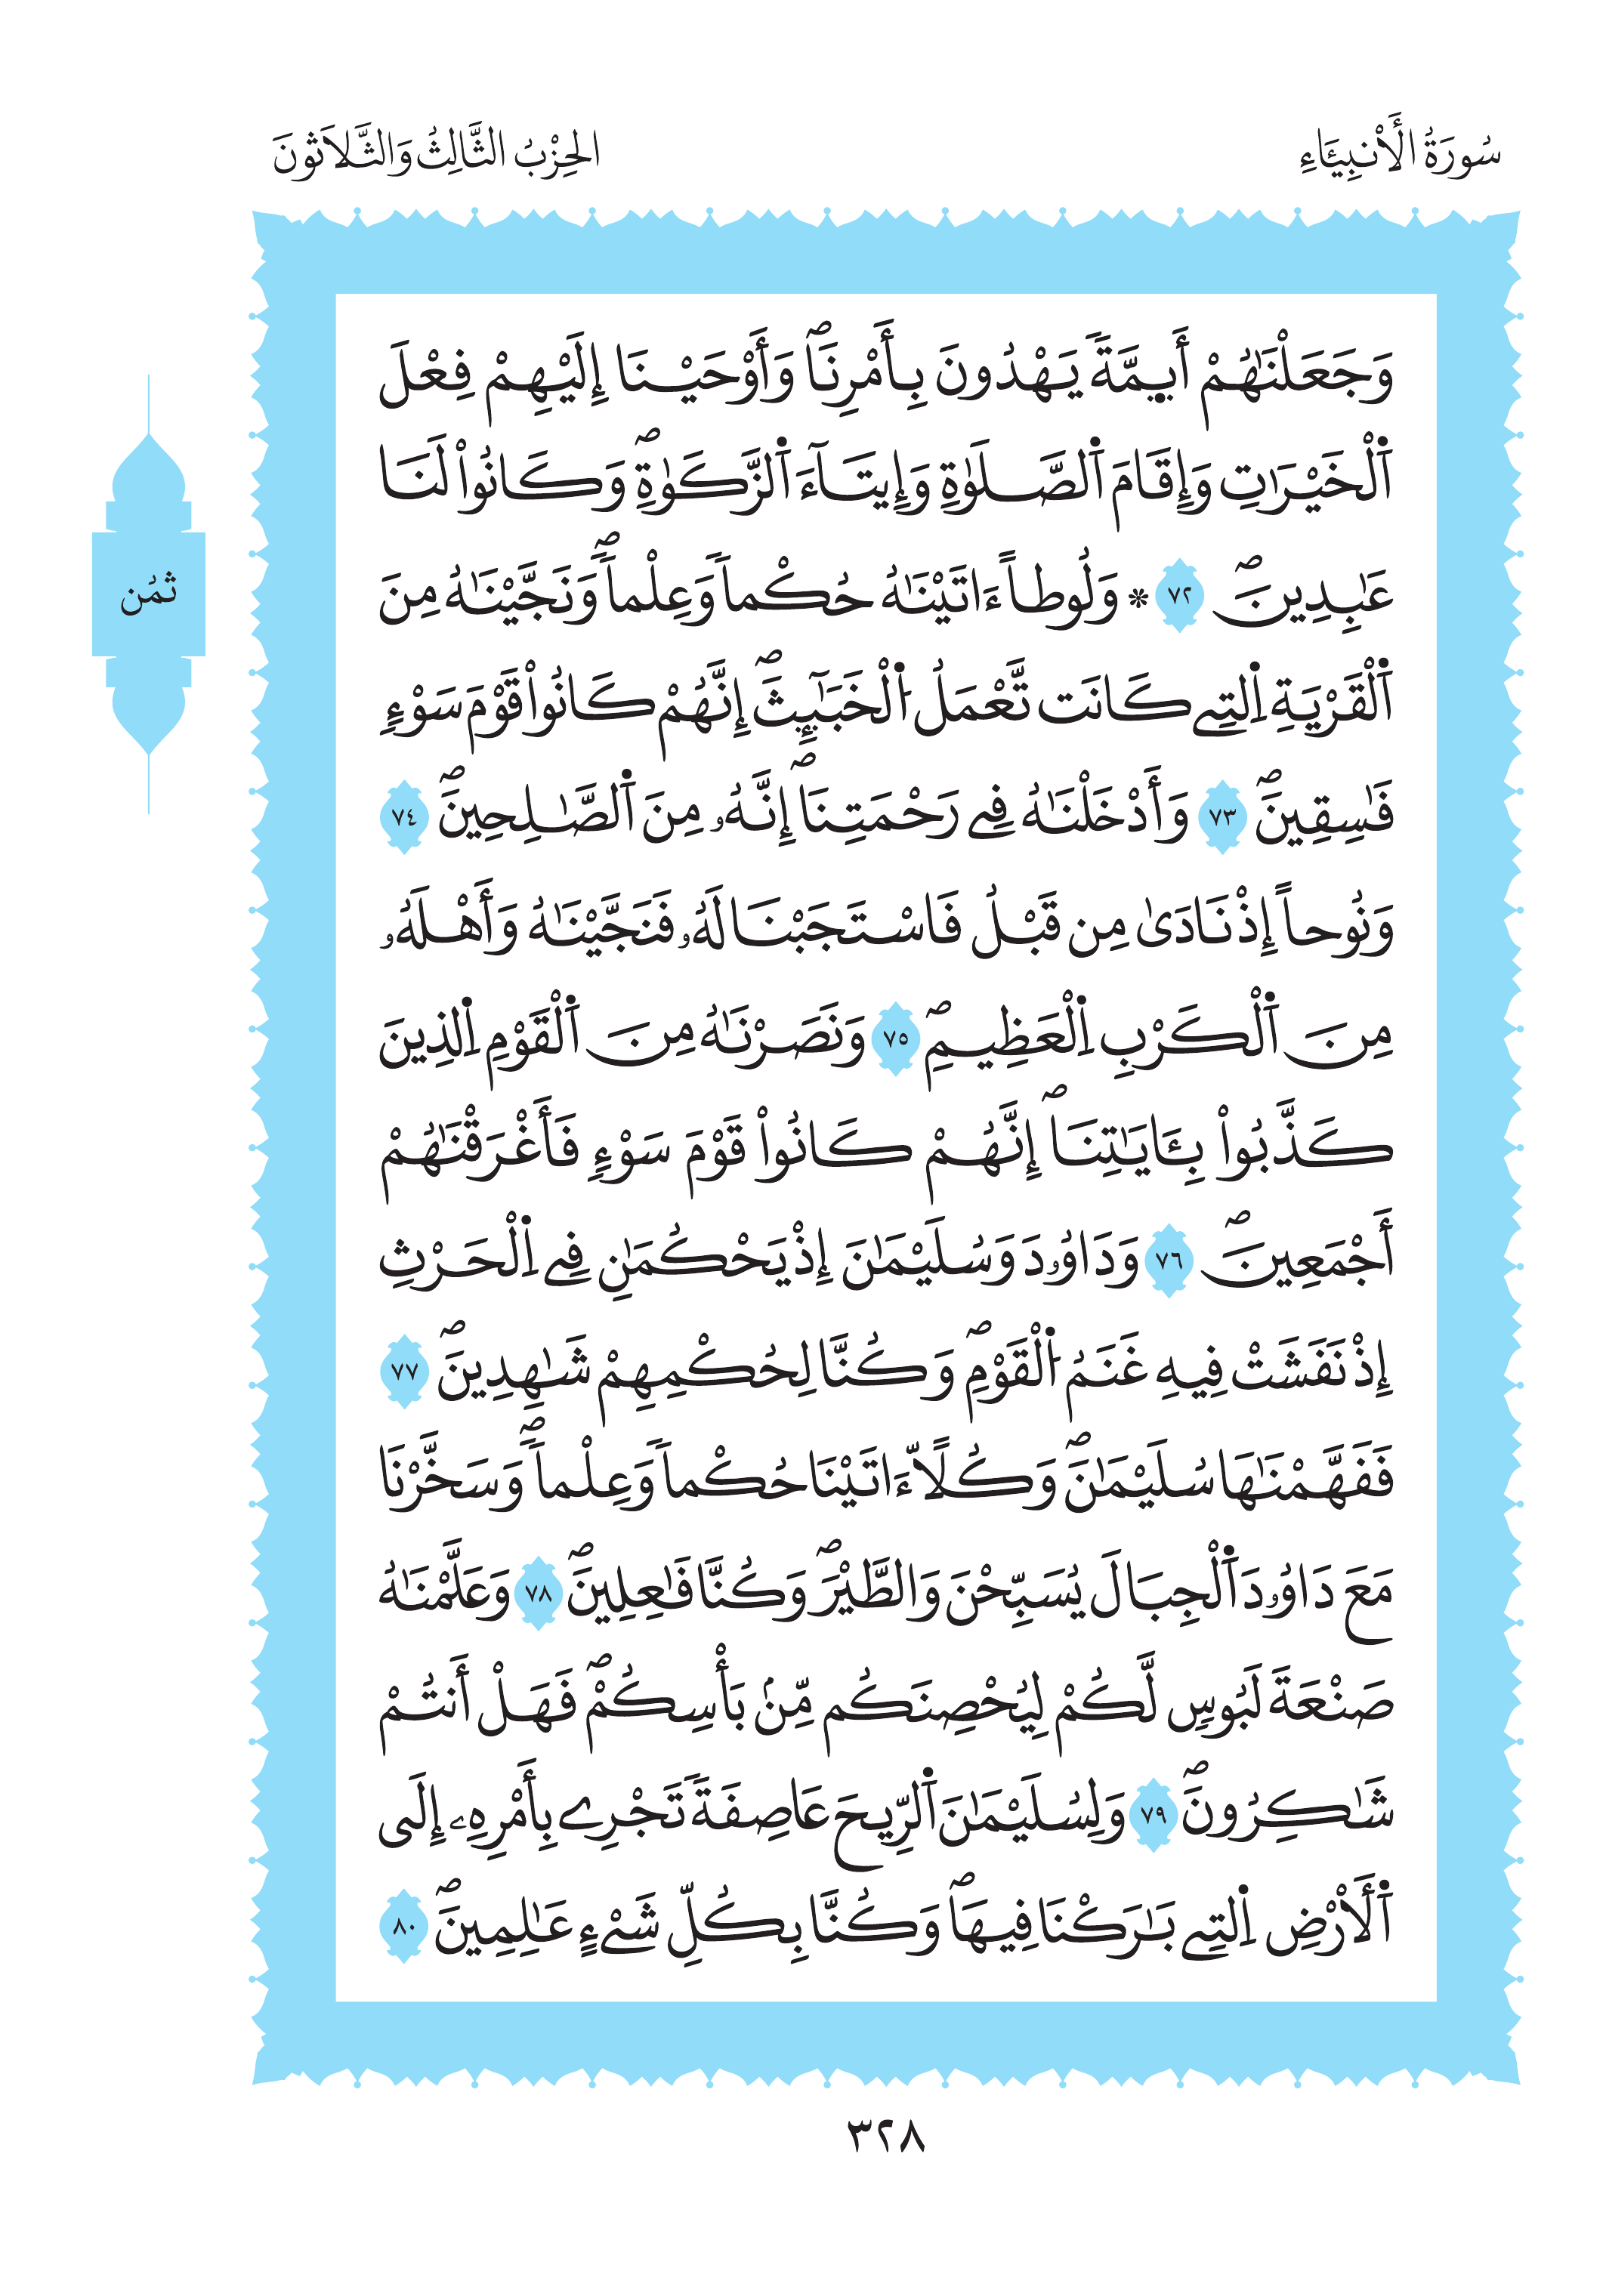 سُورَةُ الْأَنبِيَاءِ
الحِزْبُ الثَّالِثُ وَالثَّلَاثُونَ
وَجَعَلْنَٰهُمْ أَيِمَّةٗ يَهْدُونَ بِأَمْرِنَاۖ وَأَوْحَيْنَا إِلَيْهِمْ فِعْلَ
اَ۬لْخَيْرَٰتِ وَإِقَامَ اَ۬لصَّلَوٰةِ وَإِيتَآءَ اَ۬لزَّكَوٰةِۖ وَكَانُواْ لَنَا
عَٰبِدِينَۖ ٧٢ ۞ وَلُوطاً ءَاتَيْنَٰهُ حُكْماٗ وَعِلْماٗۖ وَنَجَّيْنَٰهُ مِنَ
ثمُن
اَ۬لْقَرْيَةِ اِ۬لتِے كَانَت تَّعْمَلُ اُ۬لْخَبَٰٓئِثَۖ إِنَّهُمْ كَانُواْ قَوْمَ سَوْءٖ
فَٰسِقِينَۖ ٧٣ وَأَدْخَلْنَٰهُ فِے رَحْمَتِنَاۖ إِنَّهُۥ مِنَ اَ۬لصَّٰلِحِينَۖ ٧٤
وَنُوحاً إِذْ نَادَىٰ مِن قَبْلُ فَاسْتَجَبْنَا لَهُۥ فَنَجَّيْنَٰهُ وَأَهْلَهُۥ
مِنَ اَ۬لْكَرْبِ اِ۬لْعَظِيمِۖ ٧٥ وَنَصَرْنَٰهُ مِنَ اَ۬لْقَوْمِ اِ۬لذِينَ
كَذَّبُواْ بِـَٔايَٰتِنَاۖ إِنَّهُمْ كَانُواْ قَوْمَ سَوْءٖ فَأَغْرَقْنَٰهُمْ
أَجْمَعِينَۖ ٧٦ وَدَاوُۥدَ وَسُلَيْمَٰنَ إِذْ يَحْكُمَٰنِ فِے اِ۬لْحَرْثِ
إِذْ نَفَشَتْ فِيهِ غَنَمُ اُ۬لْقَوْمِۖ وَكُنَّا لِحُكْمِهِمْ شَٰهِدِينَۖ ٧٧
فَفَهَّمْنَٰهَا سُلَيْمَٰنَۖ وَكُلّاً ءَاتَيْنَا حُكْماٗ وَعِلْماٗۖ وَسَخَّرْنَا
مَعَ دَاوُۥدَ اَ۬لْجِبَالَ يُسَبِّحْنَ وَالطَّيْرَۖ وَكُنَّا فَٰعِلِينَۖ ٧٨ وَعَلَّمْنَٰهُ
صَنْعَةَ لَبُوسٖ لَّكُمْ لِيُحْصِنَكُم مِّنۢ بَأْسِكُمْۖ فَهَلْ أَنتُمْ
شَٰكِرُونَۖ ٧٩ وَلِسُلَيْمَٰنَ اَ۬لرِّيحَ عَاصِفَةٗ تَجْرِے بِأَمْرِهِۦ إِلَى
اَ۬لْأَرْضِ اِ۬لتِے بَٰرَكْنَا فِيهَاۖ وَكُنَّا بِكُلِّ شَےْءٍ عَٰلِمِينَۖ ٨٠
٣٢٨